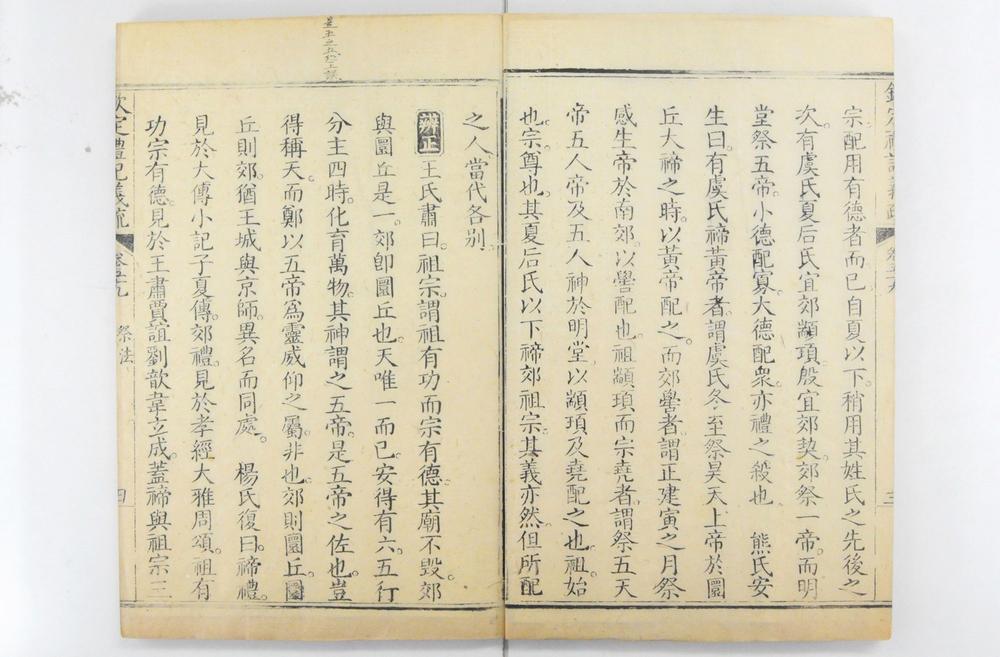 欽定禮記義疏 卷五十九 三
宗配用有德者而已自夏以下稍用其姓氏之先後之
次有虞氏夏后氏宜郊顓頊殷宜郊契郊祭一帝而明
堂祭五帝小德配寡大德配衆亦禮之殺也 熊氏安
生曰有虞氏禘黃帝者謂虞氏冬至祭昊天上帝於圜
丘大禘之時以黃帝配之而郊嚳者謂正建寅之月祭
感生帝於南郊以嚳配也祖顓頊而宗堯者謂祭五天
帝五人帝及五人神於明堂以顓頊及堯配之也祖始
也宗尊也其夏后氏以下禘郊祖宗其義亦然但所配
之人當代各別
辨正王氏肅曰祖宗謂祖有功而宗有德其廟不毀郊
與圜丘是一郊卽圜丘也天唯一而已安得有六五行
分主四時化育萬物其神謂之五帝是五帝之佐也豈
得稱天而鄭以五帝爲靈威仰之屬非也郊則圜丘圜
丘則郊猶王城與京師異名而同處 楊氏復曰禘禮
見於大傳小記子夏傳郊禮見於孝經大雅周頌祖有
功宗有德見於王肅賈誼劉歆韋立成蓋禘與祖宗三
欽定禮記義疏 卷五十九 祭法 四